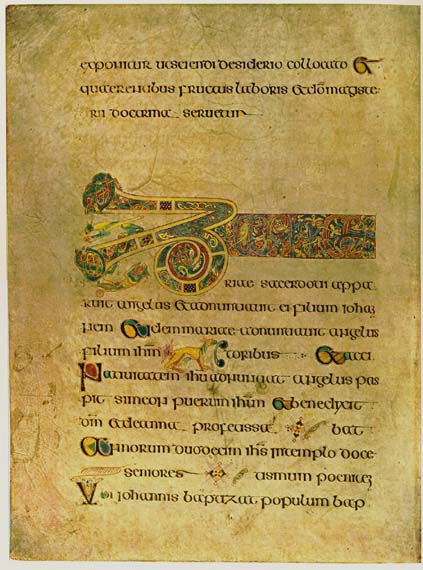 exponitur ut sciendi desiderio collocato et
quaerentibus fructus laboris et magiste
rii doctrina seruetur
Zacha
riae sacerdoti appa
ruit angelus et adnuntiauit ei filium iohan
nem et idem mariae adnuntiauit angelus
filium ihm toribus et acci
Natiuitatem ihu angelus pas
pit simeon puerum ihm et benedixit
dm et de anna profetissa bat
Annorum duodecim ihs in templo doce
seniores tismum
iohannis baptizat populum bap